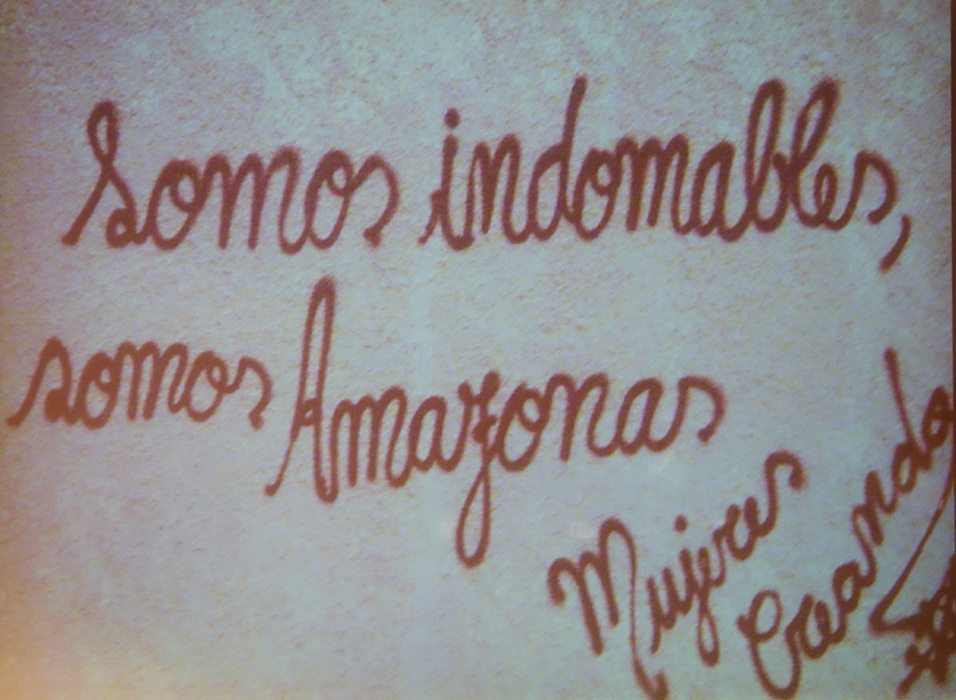 Somos indomables,
somos Amazonas
Mujeres
Creando